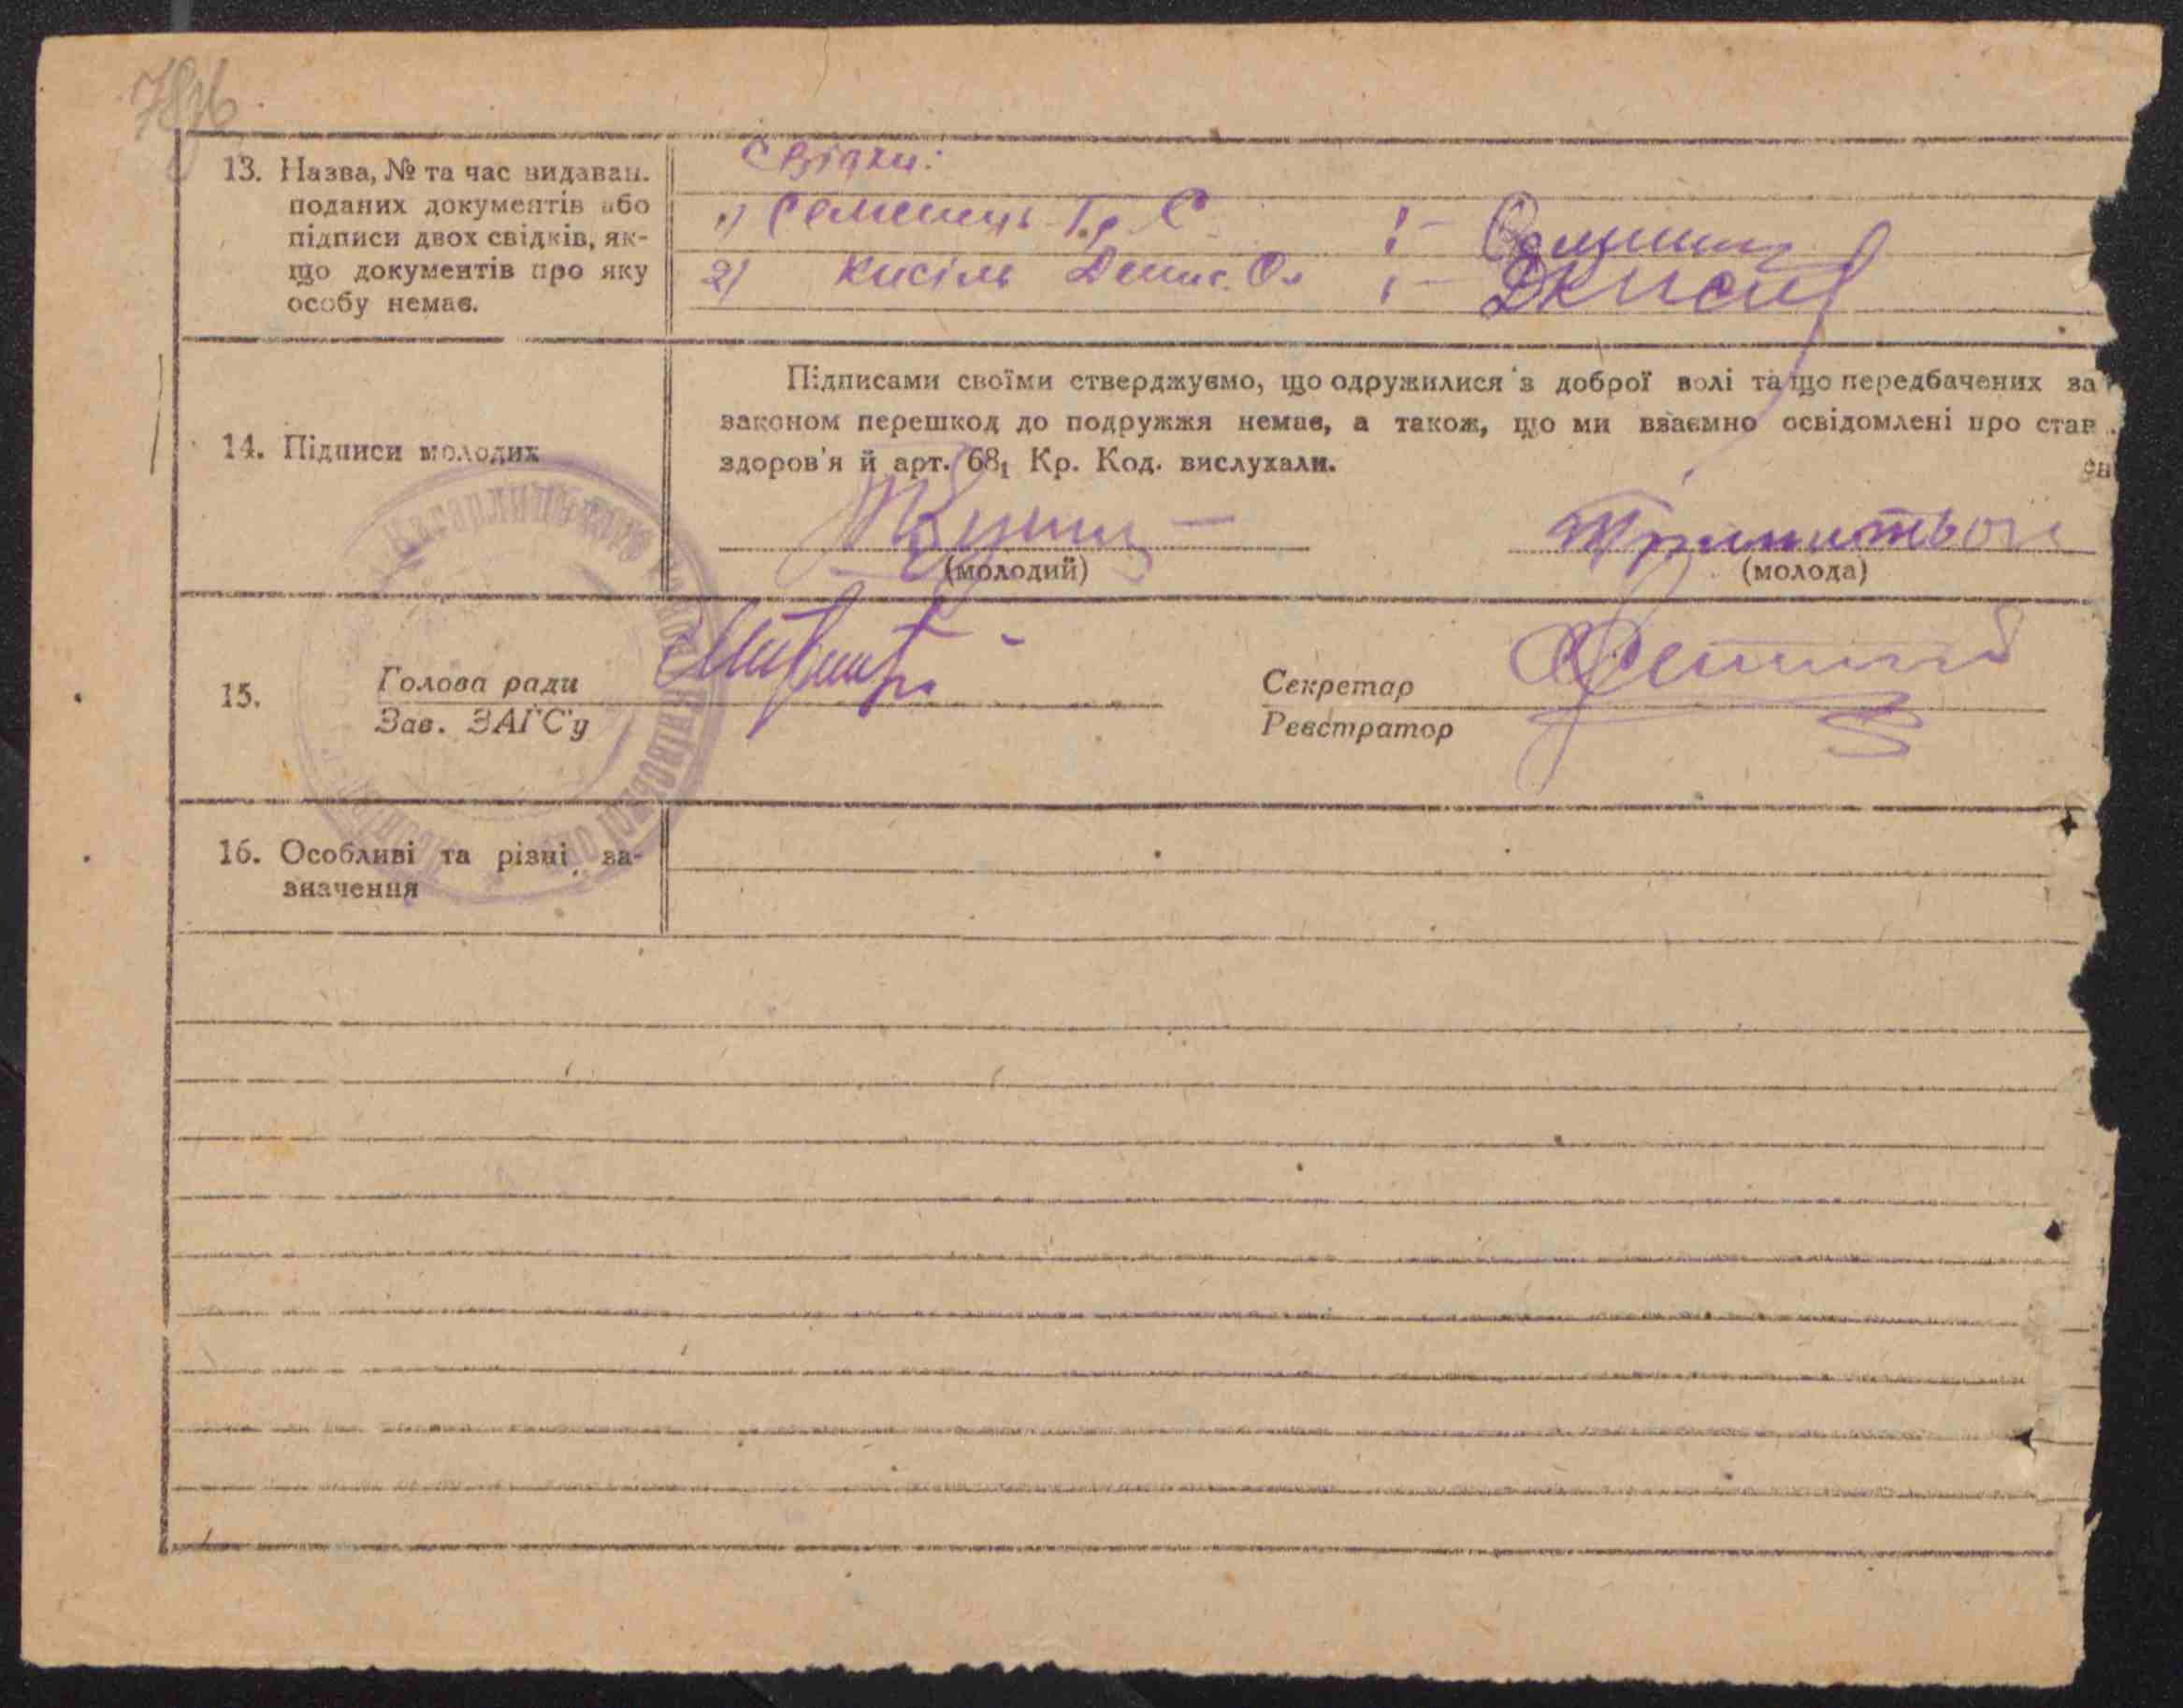 13. Назва, № та час видаван.
поданих документів або
підписи двох свідків, як-
що документів про яку
особу немає.
Свідки:
1) Семенець Гр. С. :-
2) Кисіль Денис. Ол :- ДКисіль
14. Підписи молодих
Підписами своїми стверджуємо, що одружилися з доброї волі та що передбачених за
законом перешкод до подружжя немає, а також, що ми взаємно освідомлені про стан
здоров'я й арт. 68₁ Кр. Код. вислухали.
(молодий)
(молода)
15.
Голова ради
Зав. ЗАГС'у
Секретар
Реєстратор
Кагарлицького
Київської
16. Особливі та різні за-
значення